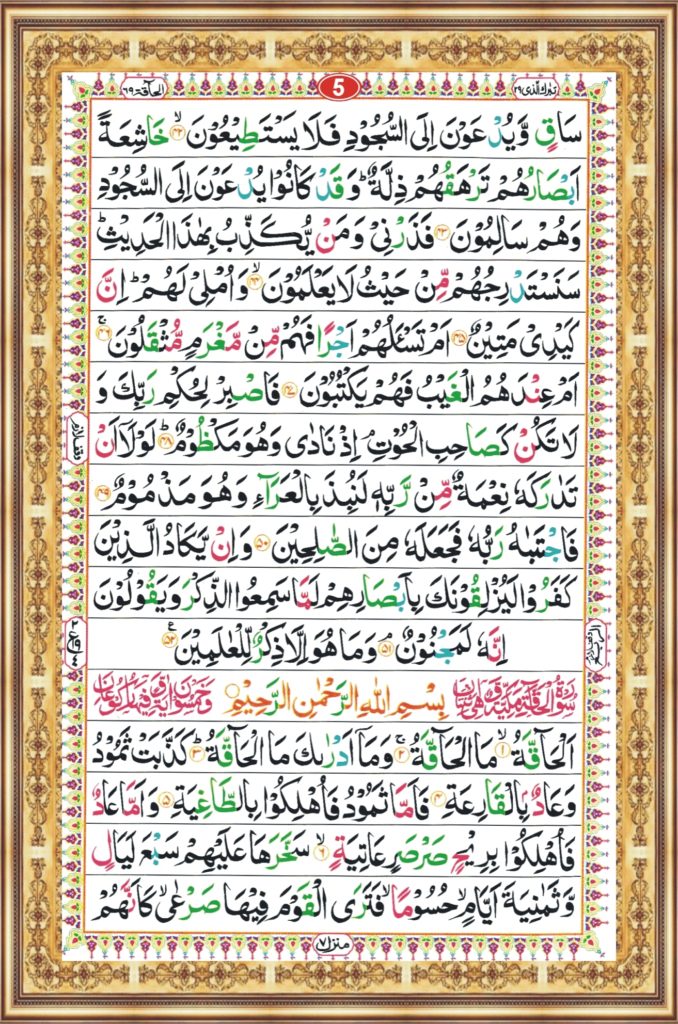 تبٰرك الذى ٢٩ 5 الحآقة ٦٩
سَاقٍ وَّيُدْعَوْنَ اِلَى السُّجُوْدِ فَلَا يَسْتَطِيْعُوْنَ ۙ‏﴿۴۲﴾ خَاشِعَةً
اَبْصَارُهُمْ تَرْهَقُهُمْ ذِلَّةٌ ؕ وَقَدْ كَانُوْا يُدْعَوْنَ اِلَى السُّجُوْدِ
وَهُمْ سَالِمُوْنَ ﴿۴۳﴾ فَذَرْنِىْ وَمَنْ يُّكَذِّبُ بِهٰذَا الْحَدِيْثِ ؕ
سَنَسْتَدْرِجُهُمْ مِّنْ حَيْثُ لَا يَعْلَمُوْنَ ۙ﴿۴۴﴾ وَاُمْلِىْ لَهُمْ ؕ اِنَّ
كَيْدِىْ مَتِيْنٌ ﴿۴۵﴾ اَمْ تَسْـَٔلُهُمْ اَجْرًا فَهُمْ مِّنْ مَّغْرَمٍ مُّثْقَلُوْنَ ۚ﴿۴۶﴾
اَمْ عِنْدَهُمُ الْغَيْبُ فَهُمْ يَكْتُبُوْنَ ﴿۴۷﴾ فَاصْبِرْ لِحُكْمِ رَبِّكَ وَ
لَا تَكُنْ كَصَاحِبِ الْحُوْتِ ۘ اِذْ نَادٰى وَهُوَ مَكْظُوْمٌ ؕ﴿۴۸﴾ لَوْلَاۤ اَنْ
تَدٰرَكَهٗ نِعْمَةٌ مِّنْ رَّبِّهٖ لَنُبِذَ بِالْعَرَآءِ وَهُوَ مَذْمُوْمٌ ﴿۴۹﴾
فَاجْتَبٰهُ رَبُّهٗ فَجَعَلَهٗ مِنَ الصّٰلِحِيْنَ ﴿۵۰﴾ وَاِنْ يَّكَادُ الَّذِيْنَ
كَفَرُوْا لَيُزْلِقُوْنَكَ بِاَبْصَارِهِمْ لَمَّا سَمِعُوا الذِّكْرَ وَيَقُوْلُوْنَ
اِنَّهٗ لَمَجْنُوْنٌ ۘ﴿۵۱﴾ وَمَا هُوَ اِلَّا ذِكْرٌ لِّلْعٰلَمِيْنَ ﴿۵۲﴾
بِسْمِ اللّٰهِ الرَّحْمٰنِ الرَّحِيْمِ
اَلْحَآقَّةُ ۙ﴿۱﴾ مَا الْحَآقَّةُ ۚ﴿۲﴾ وَمَاۤ اَدْرٰىكَ مَا الْحَآقَّةُ ؕ﴿۳﴾ كَذَّبَتْ ثَمُوْدُ
وَعَادٌۢ بِالْقَارِعَةِ ﴿۴﴾ فَاَمَّا ثَمُوْدُ فَاُهْلِكُوْا بِالطَّاغِيَةِ ﴿۵﴾ وَاَمَّا عَادٌ
فَاُهْلِكُوْا بِرِيْحٍ صَرْصَرٍ عَاتِيَةٍ ۙ﴿۶﴾ سَخَّرَهَا عَلَيْهِمْ سَبْعَ لَيَالٍ
وَّثَمٰنِيَةَ اَيَّامٍ ۙ حُسُوْمًا ۙ فَتَرَى الْقَوْمَ فِيْهَا صَرْعٰى ۙ كَاَنَّهُمْ
منزل ٧